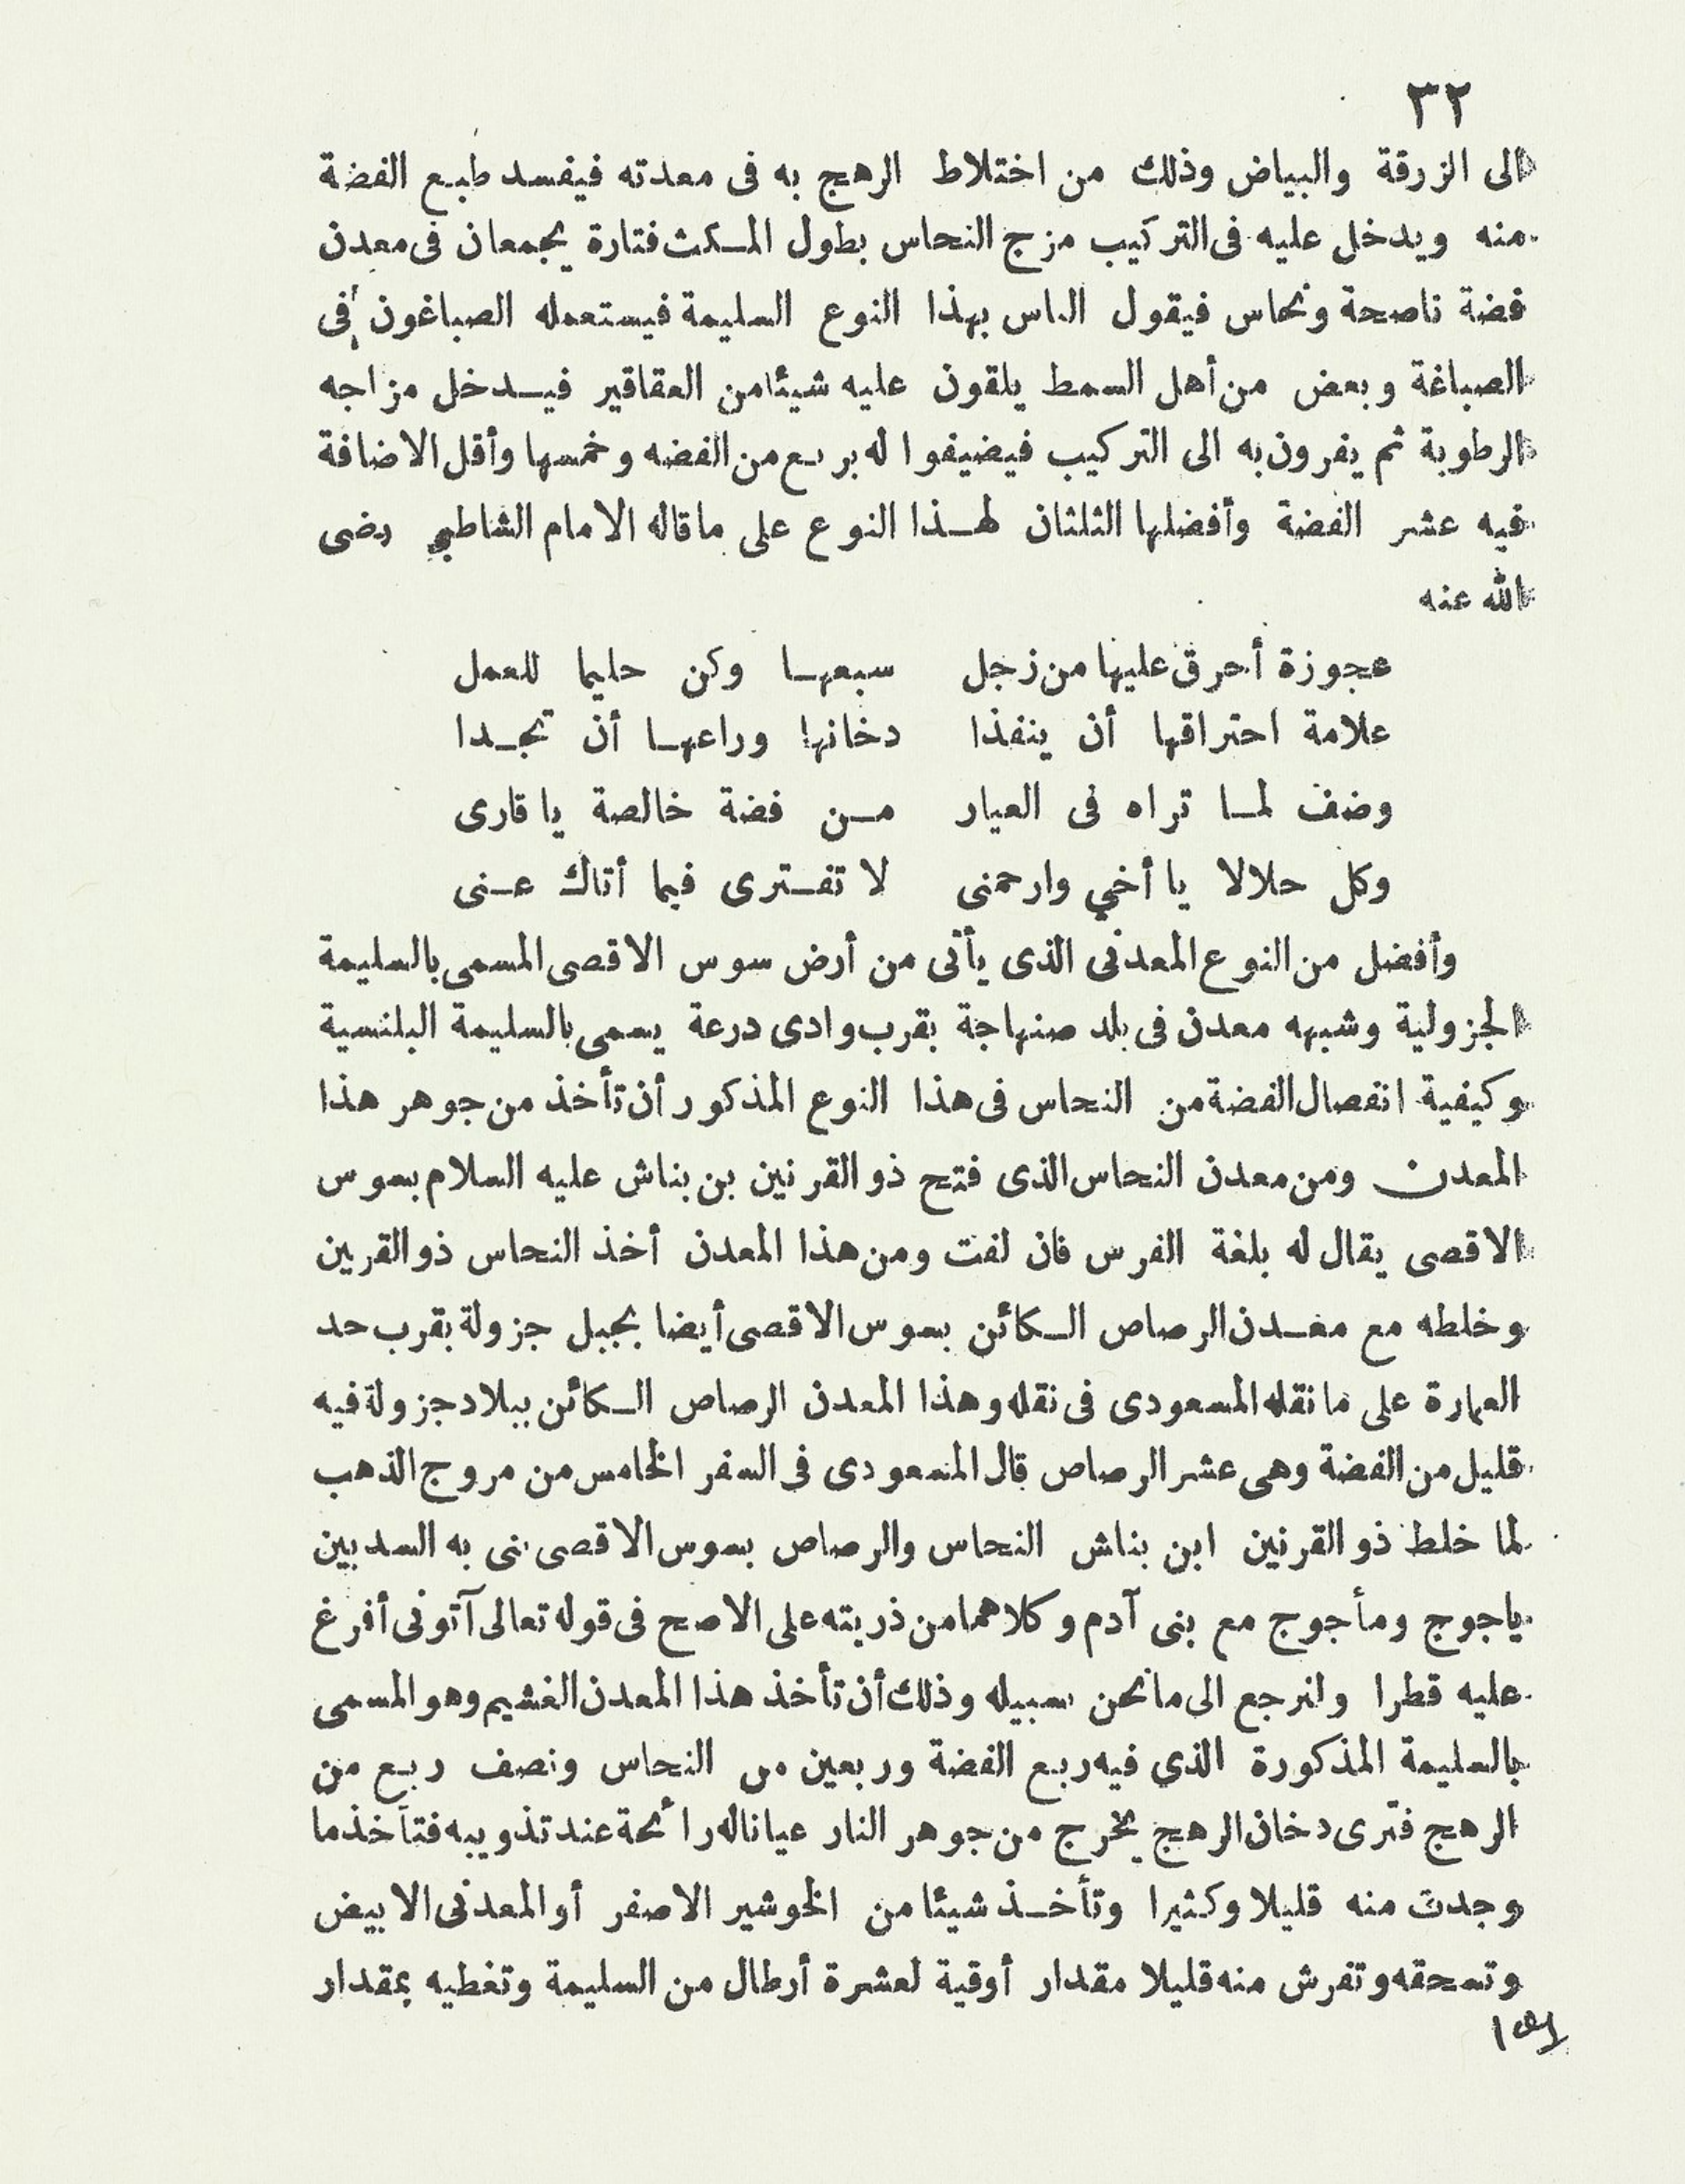 ٣٢
الى الزرقة والبياض وذلك من اختلاط الرهج به فى معدته فيفسد طبع الفضة
منه ويدخل عليه فى التركيب مزج النحاس بطول المكث فتارة يجمعان فى معدن
فضة ناصحة ونحاس فيقول الناس بهذا النوع السليمة فيستعمله الصباغون فى
الصباغة وبعض من أهل السمط يلقون عليه شيئا من العقاقير فيدخل مزاجه
الرطوبة ثم يفرون به الى التركيب فيضيفوا له بربع من الفضه وخمسها وأقل الاضافة
فيه عشر الفضة وأفضلها الثلثان لهذا النوع على ما قاله الامام الشاطبي رضى
الله عنه
عجوزة أحرق عليها من زجل سبعها وكن حليما للعمل
علامة احتراقها أن ينفذا دخانها وراعها أن تجدا
وضف لما تراه فى العيار من فضة خالصة يا قارى
وكل حلالا يا أخي وارحمنى لا تفترى فيما أتاك عنى
وأفضل من النوع المعدنى الذى يأتى من أرض سوس الاقصى المسمى بالسليمة
الجزولية وشبهه معدن فى بلد صنهاجة بقرب وادى درعة يسمى بالسليمة البلنسية
وكيفية انفصال الفضة من النحاس فى هذا النوع المذكور أن تأخذ من جوهر هذا
المعدن ومن معدن النحاس الذى فتح ذو القرنين بن بناش عليه السلام بسوس
الاقصى يقال له بلغة الفرس فان لفت ومن هذا المعدن أخذ النحاس ذو القرين
وخلطه مع معدن الرصاص الكائن بسوس الاقصى أيضا بجبل جزولة بقرب حد
العمارة على ما نقله المسعودى فى نقله وهذا المعدن الرصاص الكائن ببلاد جزولة فيه
قليل من الفضة وهى عشر الرصاص قال المسعودى فى السفر الخامس من مروج الذهب
لما خلط ذو القرنين ابن بناش النحاس والرصاص بسوس الاقصى بنى به السد بين
ياجوج ومأجوج مع بنى آدم وكلاهما من ذريته على الاصح فى قوله تعالى آتونى أفرغ
عليه قطرا ولنرجع الى ما نحن بسبيله وذلك أن تأخذ هذا المعدن الغشيم وهو المسمى
بالسليمة المذكورة الذي فيه ربع الفضة وربعين من النحاس ونصف ربع من
الرهج فترى دخان الرهج يخرج من جوهر النار عيانا له رائحة عند تذويبه فتأخذ ما
وجدت منه قليلا وكثيرا وتأخذ شيئا من الخوشير الاصفر أو المعدنى الابيض
وتسحقه وتفرش منه قليلا مقدار أوقية لعشرة أرطال من السليمة وتغطيه بمقدار